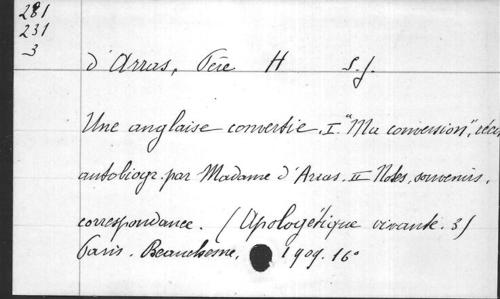 281
231
3
d'Arras, Père H S.J.
Une anglaise convertie. I. "Ma conversion", récit
autobiogr. par Madame d'Arras. II Notes, souvenirs,
correspondance. (Apologétique vivante. 3)
Paris. Beauchesne, 1909. 16°